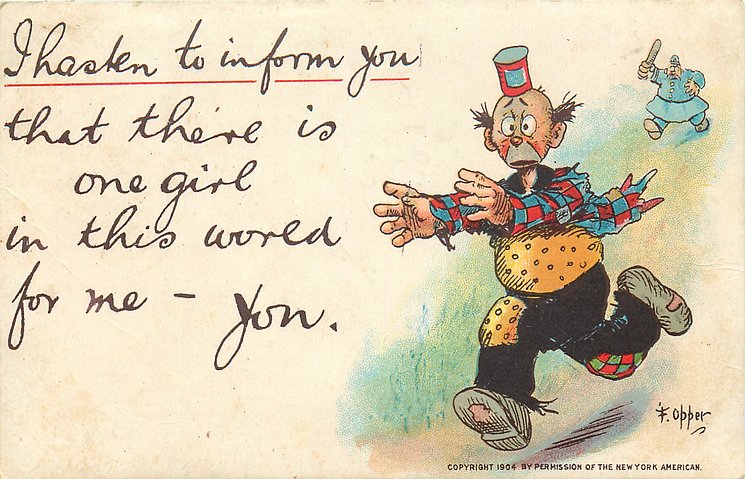 I hasten to inform you
that there is
one girl
in this world
for me – you.
F. Opper
COPYRIGHT 1904 BY PERMISSION OF THE NEW YORK AMERICAN.